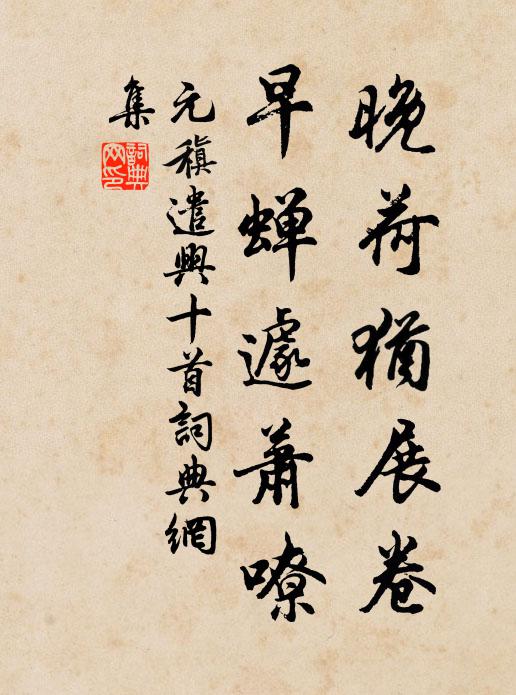 晚荷猶展卷
早蟬遽蕭嘹
元稹遣興十首詞典網
集
詞典網印